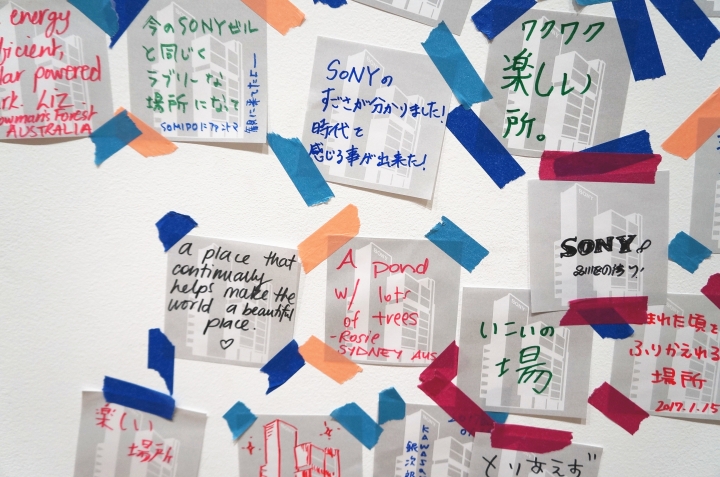 energy
powered
Forest
AUSTRALIA
今のSONYビル
と同じく
ラブリーな
場所になって
観に来てたよー
SoNYの
すごさが分かりました!
時代を
感じる事が出来た!
ワクワク
楽しい
所。
SONY
a place that
continually
helps make the
world a beautiful
place.
♡
A pond
w/ lots
of trees
-Rosie
SYDNEY AUS
いこいの
場
まれた頃を
ふりかえれる
場所
2017.1.15
楽しい
場所
KAWASA
銀次郎
とりあえず